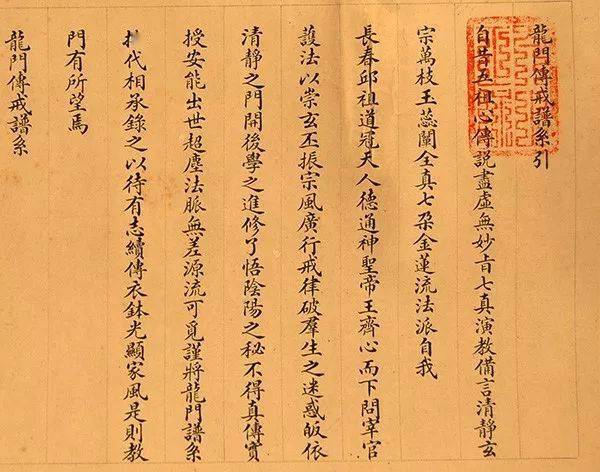 龍門傳戒譜系引
自昔五祖心傳說盡虛無妙旨七真演教備言清靜玄
宗萬枝玉蕊闡全真七朶金蓮流法派自我
長春邱祖道冠天人德通神聖帝王齊心而下問宰官
護法以崇玄丕振宗風廣行戒律破羣生之迷惑皈依
清靜之門開後學之進修了悟陰陽之秘不得真傳實
授安能出世超塵法脈無差源流可覓謹將龍門譜系
代相承錄之以待有志續傳衣鉢光顯家風是則教
門有所望焉
龍門傳戒譜系